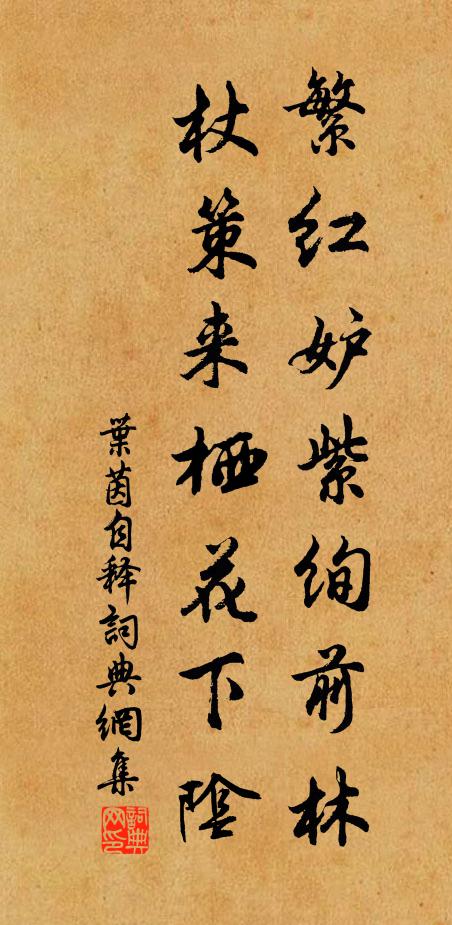 繁红妒紫绚前林
杖策来栖花下陰
葉茵自释詞典網集
詞典网印